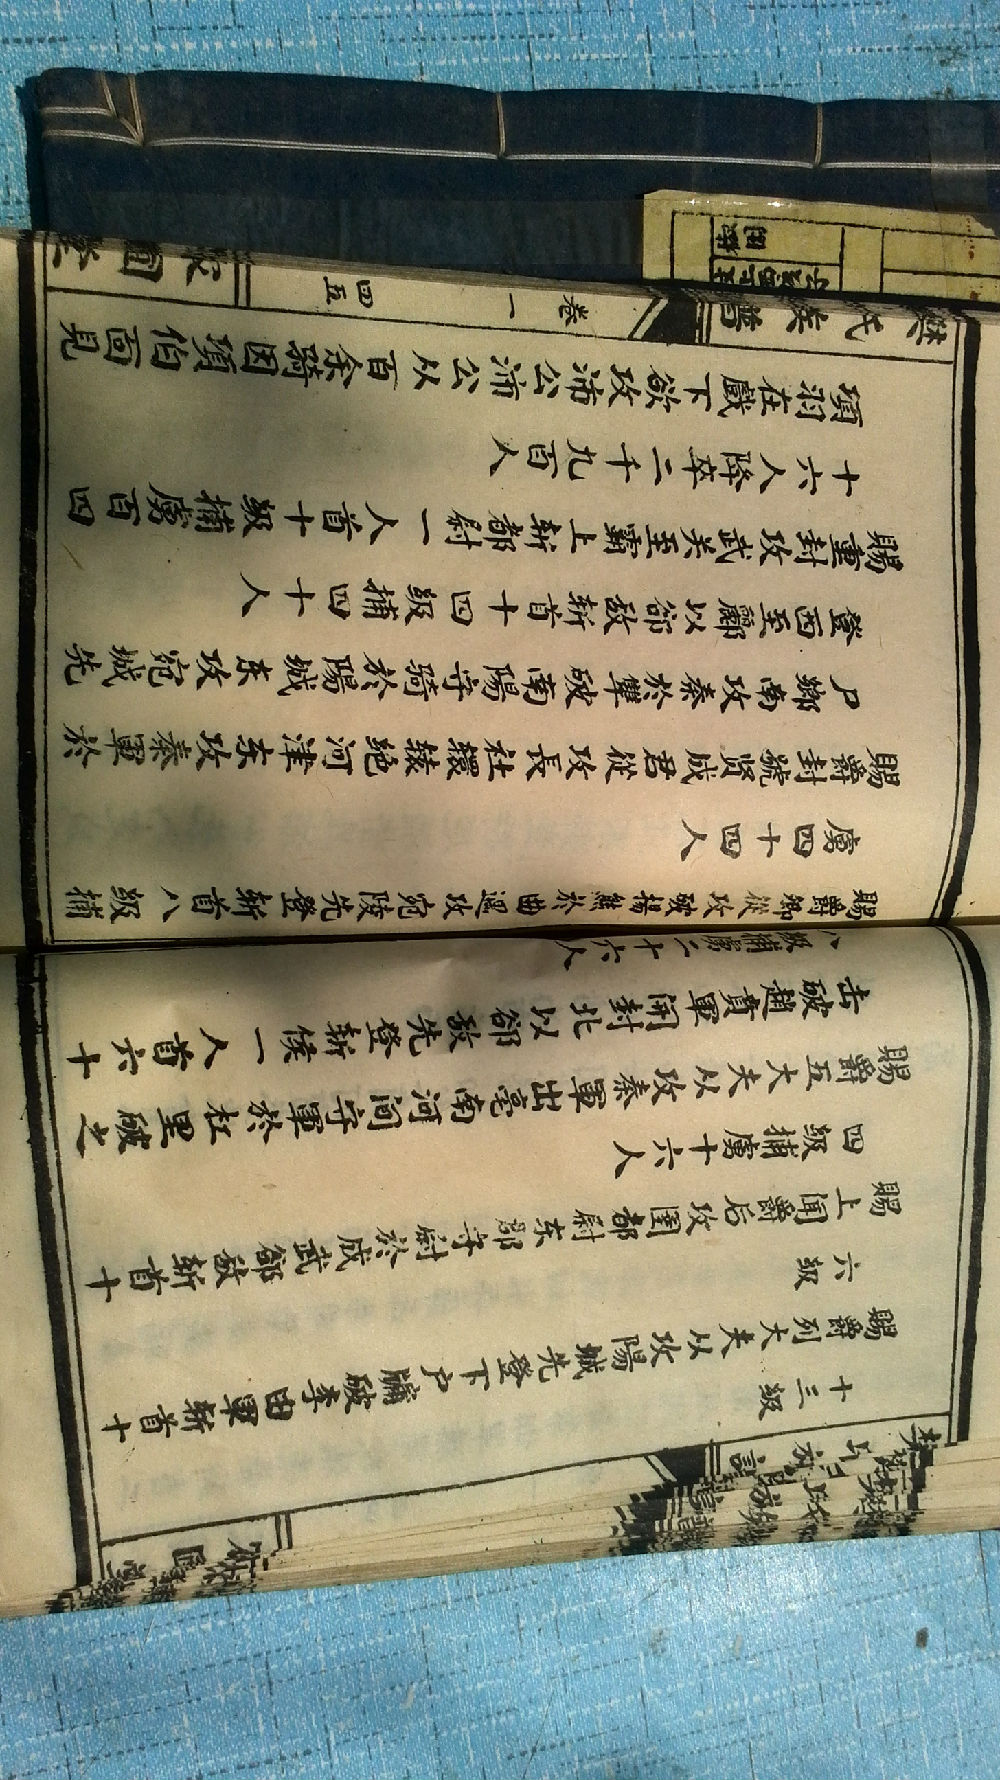 十三級
賜爵列大夫从攻陽城先登下户牖破李由軍斬首十
六級
賜上闻爵后攻圉都尉东郡守尉於成武郤敌斬首十
四級捕虜十六人
賜爵五大夫从攻秦軍出亳南河间守軍於杠里破之
击破趙賁軍開封北以郤敌先登斬候一人首六十
八級捕虜二十六人
賜爵卿從攻破楊熊於曲遇攻宛陵先登斬首八級捕
虜四十四人
賜爵封號贤成君從攻長社轘辕絕河津东攻秦軍於
尸鄉南攻秦於犨破南陽守騎於陽城东攻宛城先
登西至酈以郤敌斬首十四級捕四十人
賜重封攻武关至霸上斬都尉一人首十級捕虜百四
十六人降卒二千九百人
項羽在戲下欲攻沛公沛公从百余騎因項伯面見
樊氏族譜 卷一 四五